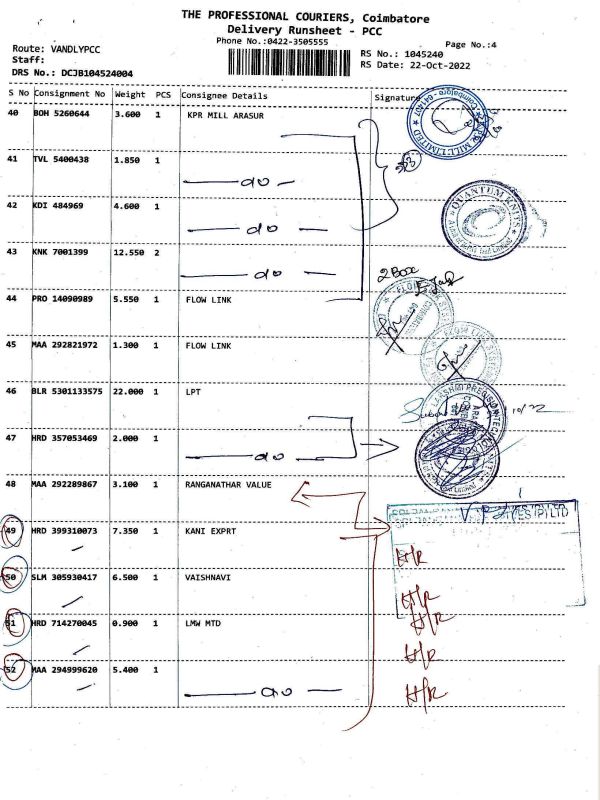 THE PROFESSIONAL COURIERS, Coimbatore
Delivery Runsheet - PCC
Phone No.:0422-3505555
Page No.:4
Route: VANDLYPCC
RS No.: 1045240
Staff:
RS Date: 22-Oct-2022
DRS No.: DCJB104524004
S No Consignment No Weight PCS Consignee Details Signature
40 BOH 5260644 3.600 1 KPR MILL ARASUR
41 TVL 5400438 1.850 1 do
42 KDI 484969 4.600 1 do
QUANTUM KNITS
43 KNK 7001399 12.550 2 do
2 Box
44 PRO 14090989 5.550 1 FLOW LINK
45 MAA 292821972 1.300 1 FLOW LINK
46 BLR 5301133575 22.000 1 LPT
47 HRD 357053469 2.000 1 do
48 MAA 292289867 3.100 1 RANGANATHAR VALUE
49 HRD 399310073 7.350 1 KANI EXPRT
H/R
50 SLM 305930417 6.500 1 VAISHNAVI
H/R
51 HRD 714270045 0.900 1 LMW MTD
H/R
H/R
52 MAA 294999620 5.400 1 do
H/R